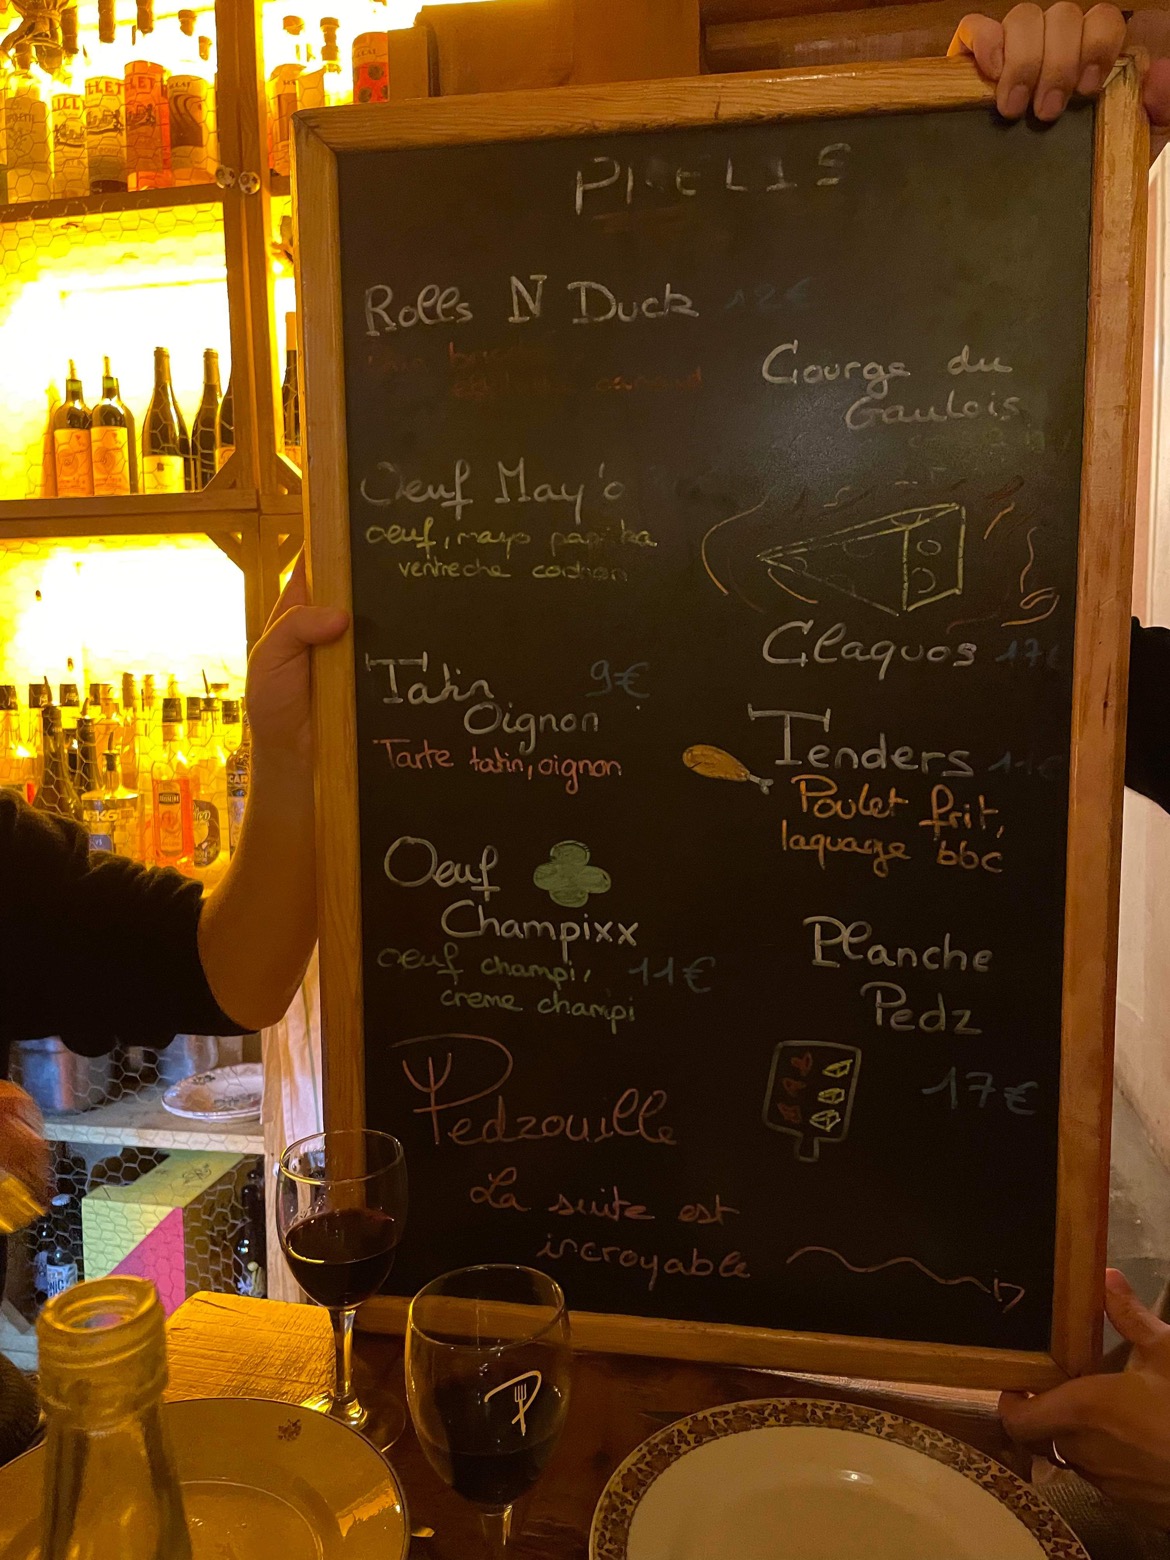 Rolls N Duck 12€
Oeuf May'o
oeuf, mayo paprika
ventreche cochon
Tatin 9€
Oignon
Tarte tatin, oignon
Oeuf
Champixx
oeuf champi, 11€
creme champi
Pedzouille
La suite est
incroyable
Courge du
Gaulois
Claquos 17€
Tenders 11€
Poulet frit,
laquage bbc
Planche
Pedz
17€